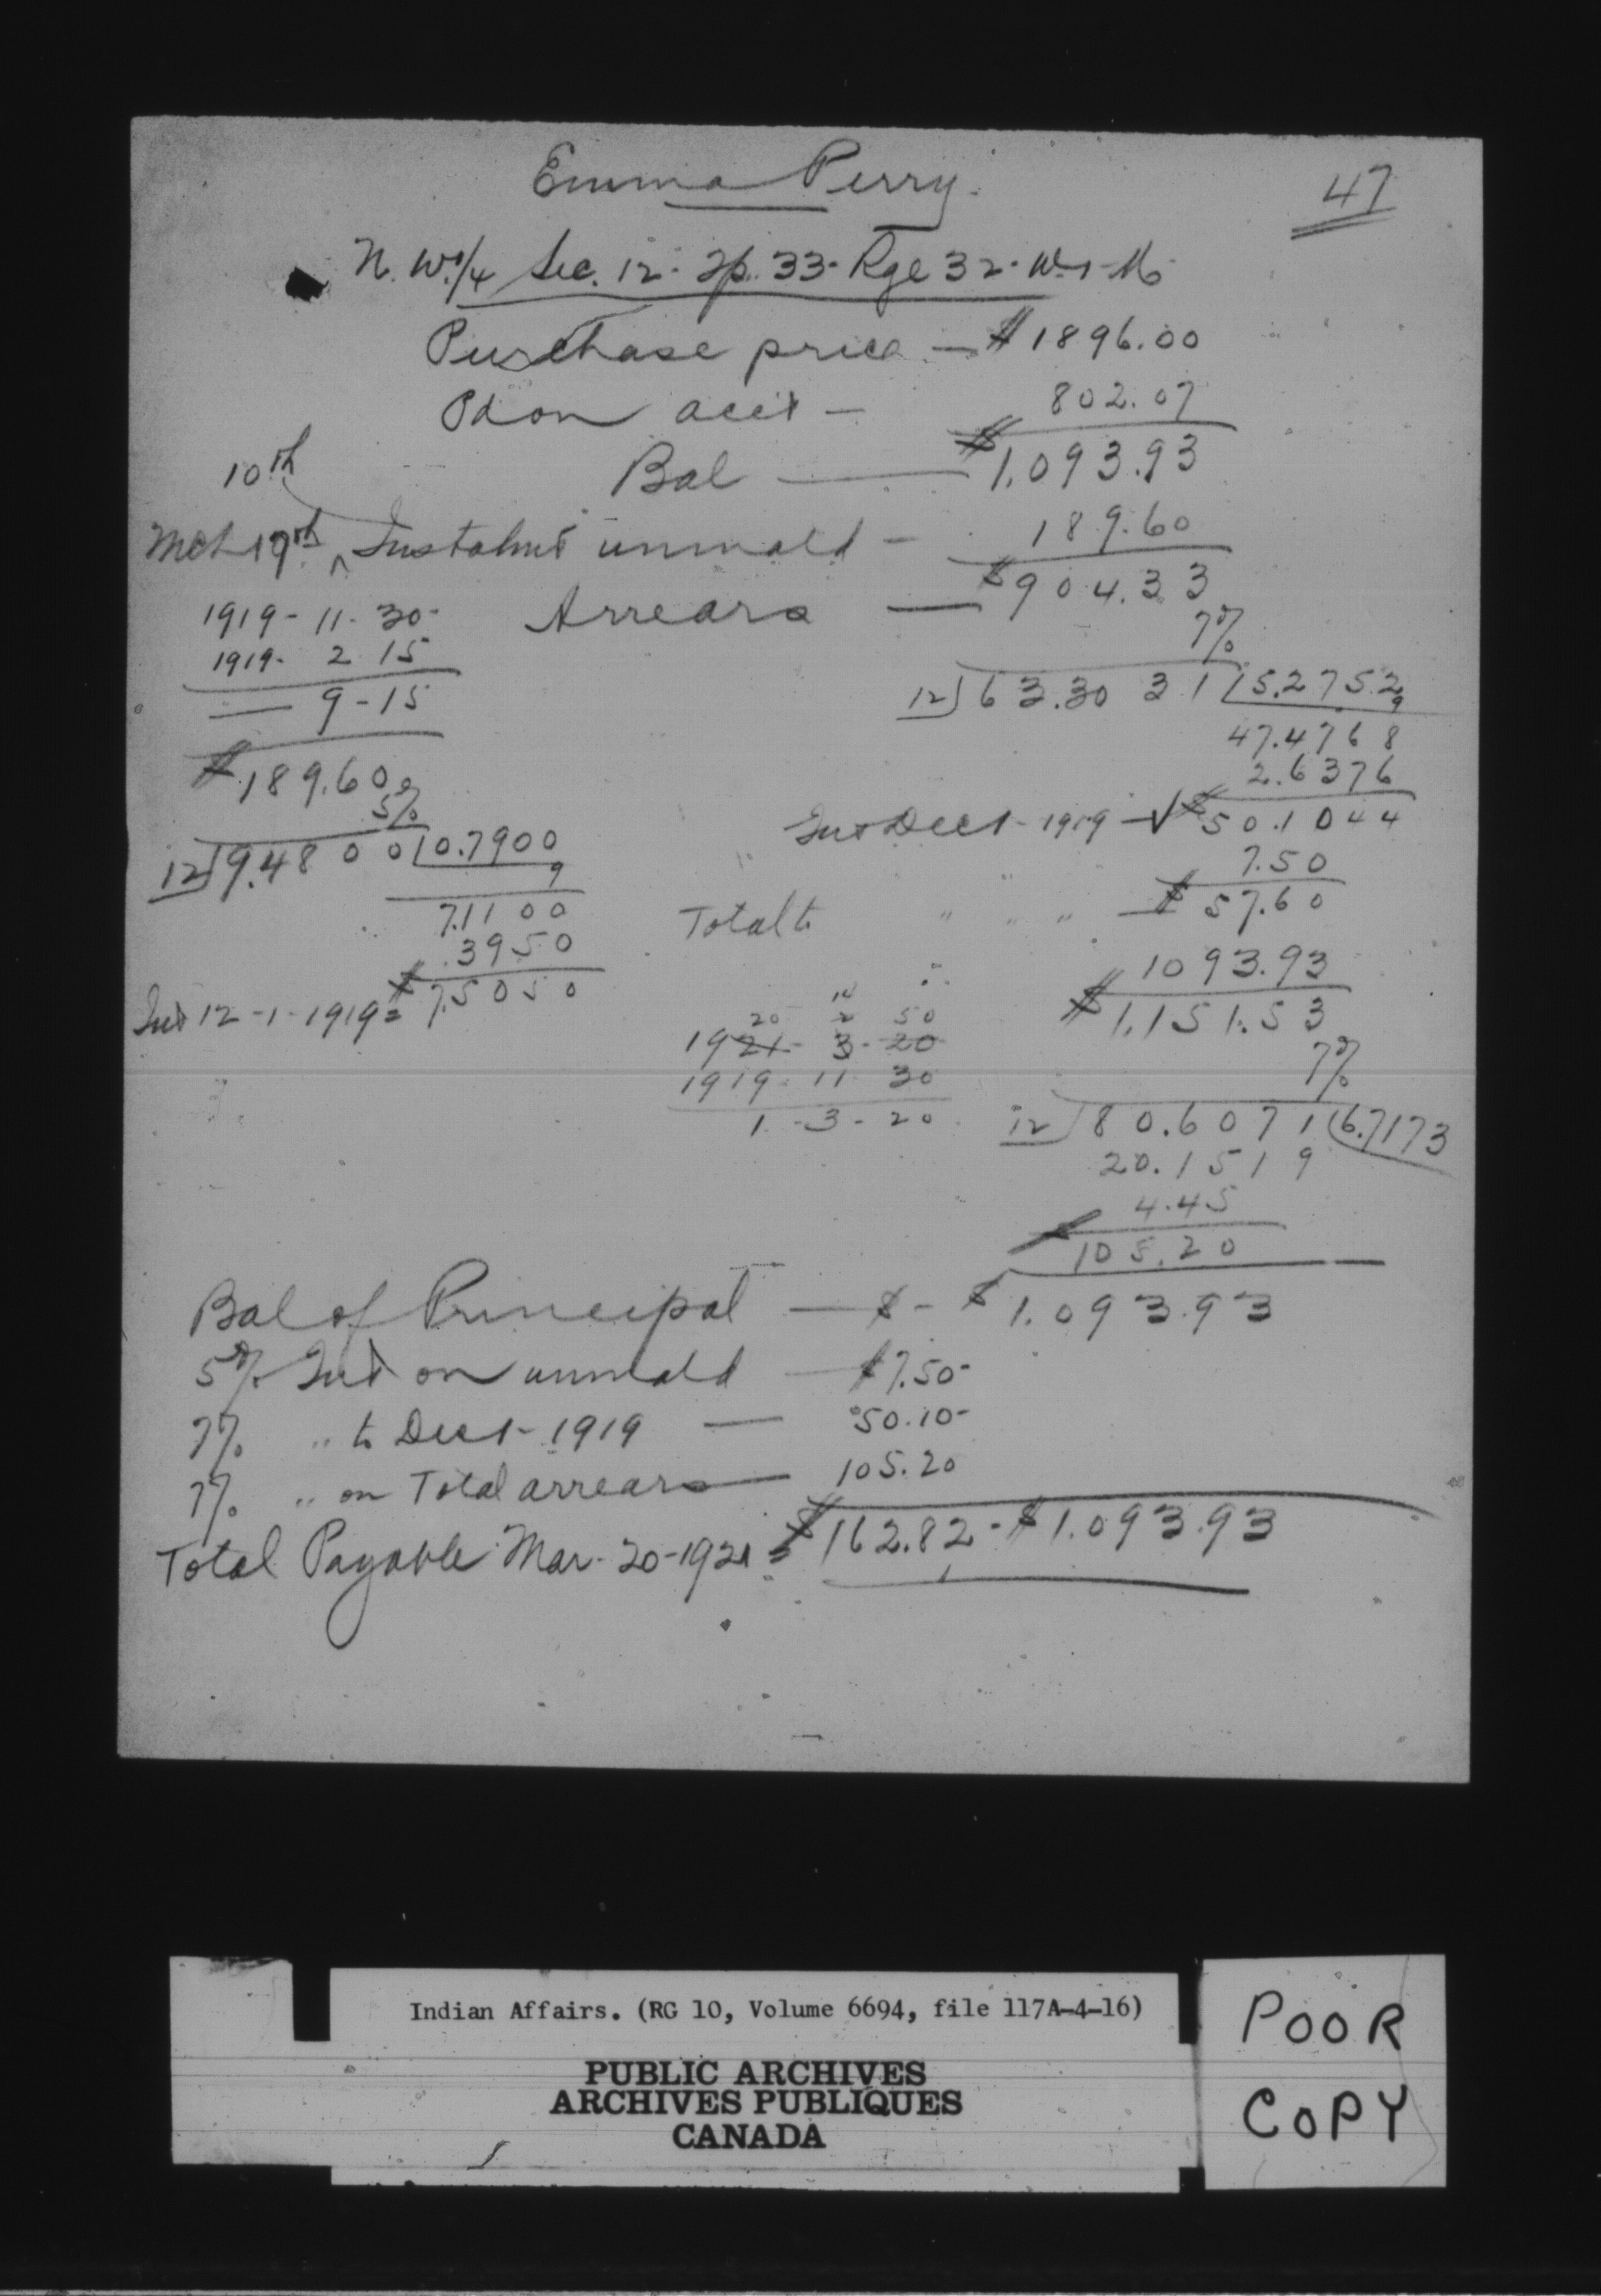 Emma Perry.
47
N.W. 1/4 Sec. 12 - Tp. 33 - Rge 32 - W - 1 - M
Purchase price — $1896.00
Pd on acct — 802.07
Bal — $1,093.93
10th
Instalmt unmatd — 189.60
Arrears — $904.33
7%
1919 - 11 - 30
1919 - 2 15
— 9 - 15
12)63.3031(5.2752
9
47.4768
2.6376
Int Dec 1 - 1919 — √ $50.1044
7.50
Total to " " " — $57.60
1093.93
$1,151.53
7%
$189.60
5%
12)9.4800(0.7900
9
7.1100
.3950
Int 12 - 1 - 1919 = $7.5050
20 14 50
2
1921 - 3 - 20
1919 - 11 - 30
1. - 3 - 20
12)80.6071(6.7173
20.1519
4.45
105.20
Bal of Principal — $ - $1,093.93
5% Int on unmatd — $7.50 -
7% " to Dec 1 - 1919 — 50.10 -
7% " on Total arrears — 105.20
Total Payable Mar - 20 - 1921 = $162.82 - $1,093.93
Indian Affairs. (RG 10, Volume 6694, file 117A-4-16)
PUBLIC ARCHIVES
ARCHIVES PUBLIQUES
CANADA
POOR
COPY